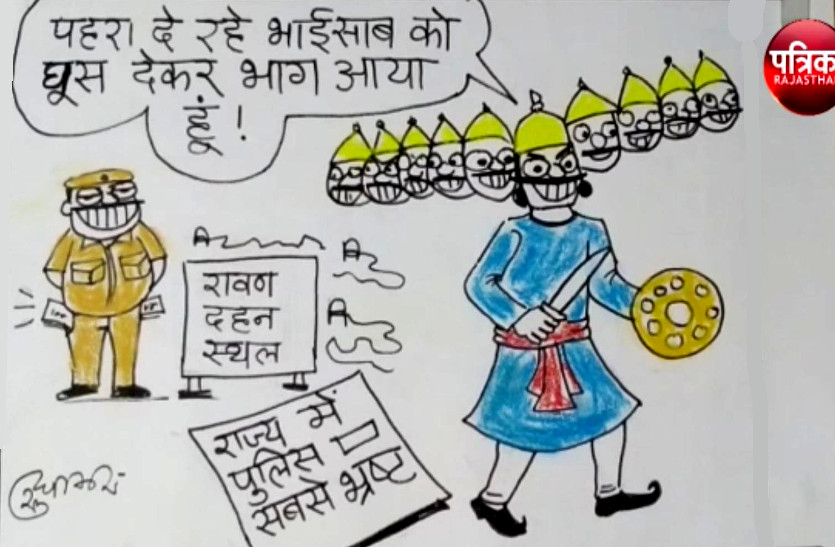 पहरा दे रहे भाईसाब को
घूस देकर भाग आया
हूं !
पत्रिक
RAJASTHA
रावण
दहन
स्थल
राज्य में
पुलिस
सबसे भ्रष्ट